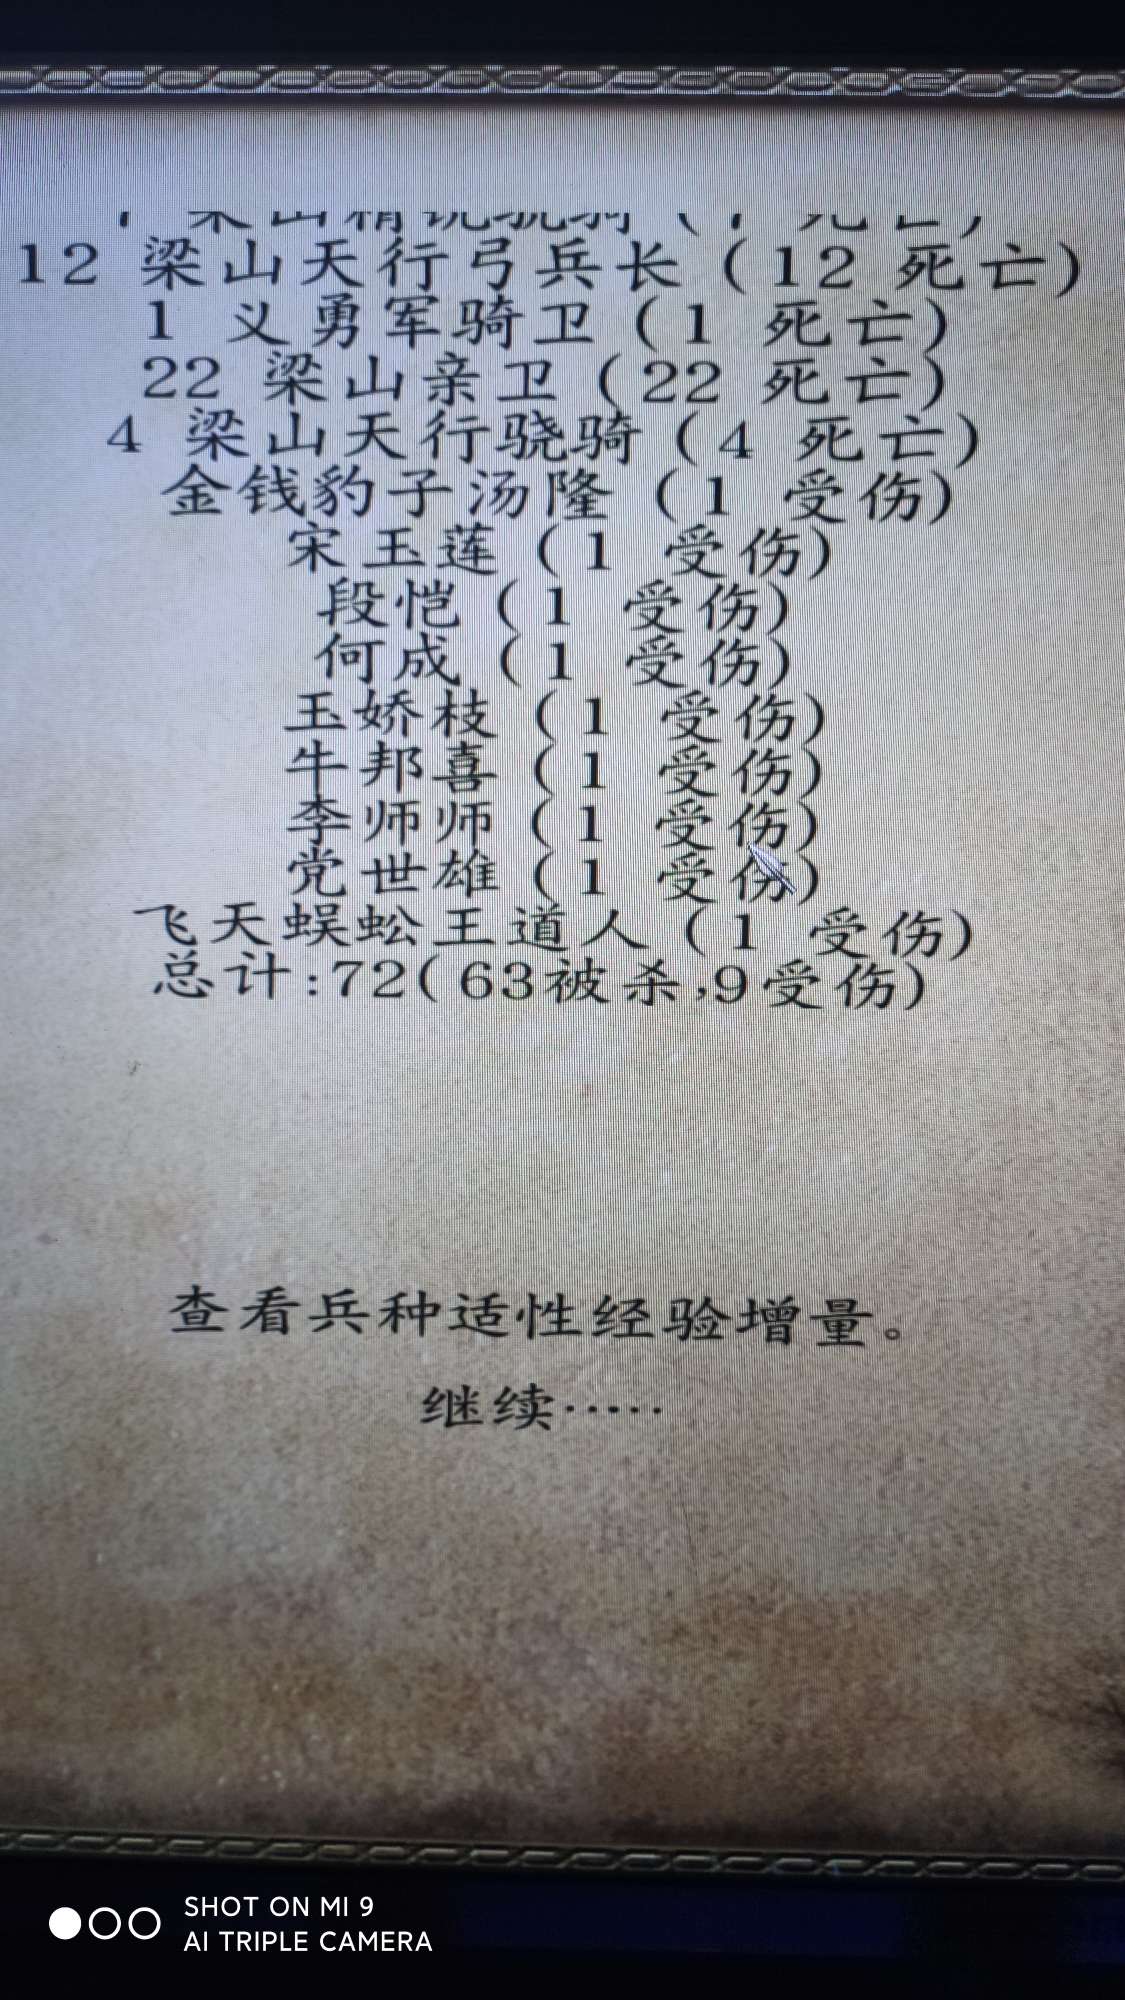 12 梁山天行弓兵长（12 死亡）
1 义勇军骑卫（1 死亡）
22 梁山亲卫（22 死亡）
4 梁山天行骁骑（4 死亡）
金钱豹子汤隆（1 受伤）
宋玉莲（1 受伤）
段恺（1 受伤）
何成（1 受伤）
玉娇枝（1 受伤）
牛邦喜（1 受伤）
李师师（1 受伤）
党世雄（1 受伤）
飞天蜈蚣王道人（1 受伤）
总计:72(63被杀,9受伤)
查看兵种适性经验增量。
继续·····
SHOT ON MI 9
AI TRIPLE CAMERA